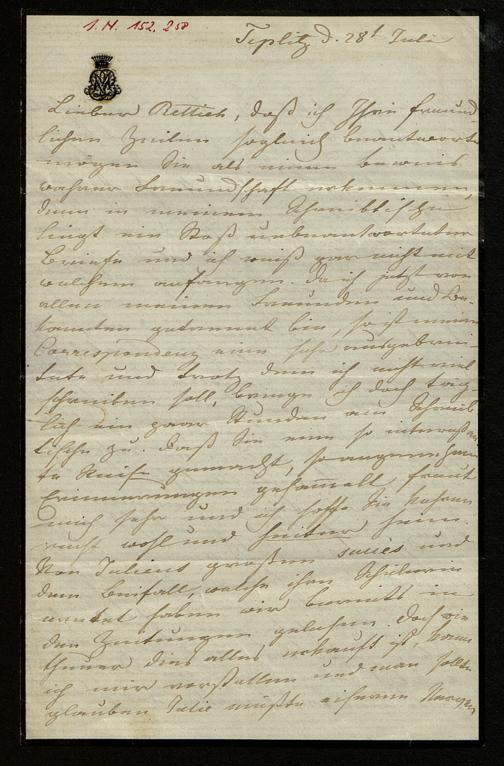 I. N. 152.258
Teplitz d. 28t Juli
Lieber Rettich, daß ich Ihre freund
lichen Zeilen sogleich beantworte
mögen Sie als einen beweis
wahrer Freundschaft erkennen,
denn in meinem Schreibtische
liegt ein Stoß unbeantworteter
Briefe und ich weiß gar nicht mit
welchem anfangen. Da ich jetzt von
allen meinen Freunden und Be
kannten getrennt bin, so ist meine
Correspondenz eine sehr ausgebrei
tete und trotz dem ich nicht viel
schreiben soll, bringe ich doch täg
lich ein paar Stunden am Schreib
tische zu. Daß Sie eine so interessan
te Reise gemacht, so angenehme
Erinnerungen gesammelt, freut
mich sehr und ich hoffe Sie kehren
recht wohl und heiter heim.
Von Juliens großen succès und
dem Beifall, welche ihre Schülerin
erntet haben wir bereits in
den Zeitungen gelesen. Doch wie
theuer dies alles erkauft ist, kann
ich mir vorstellen und man sollte
glauben Julie müßte eiserne Nerven